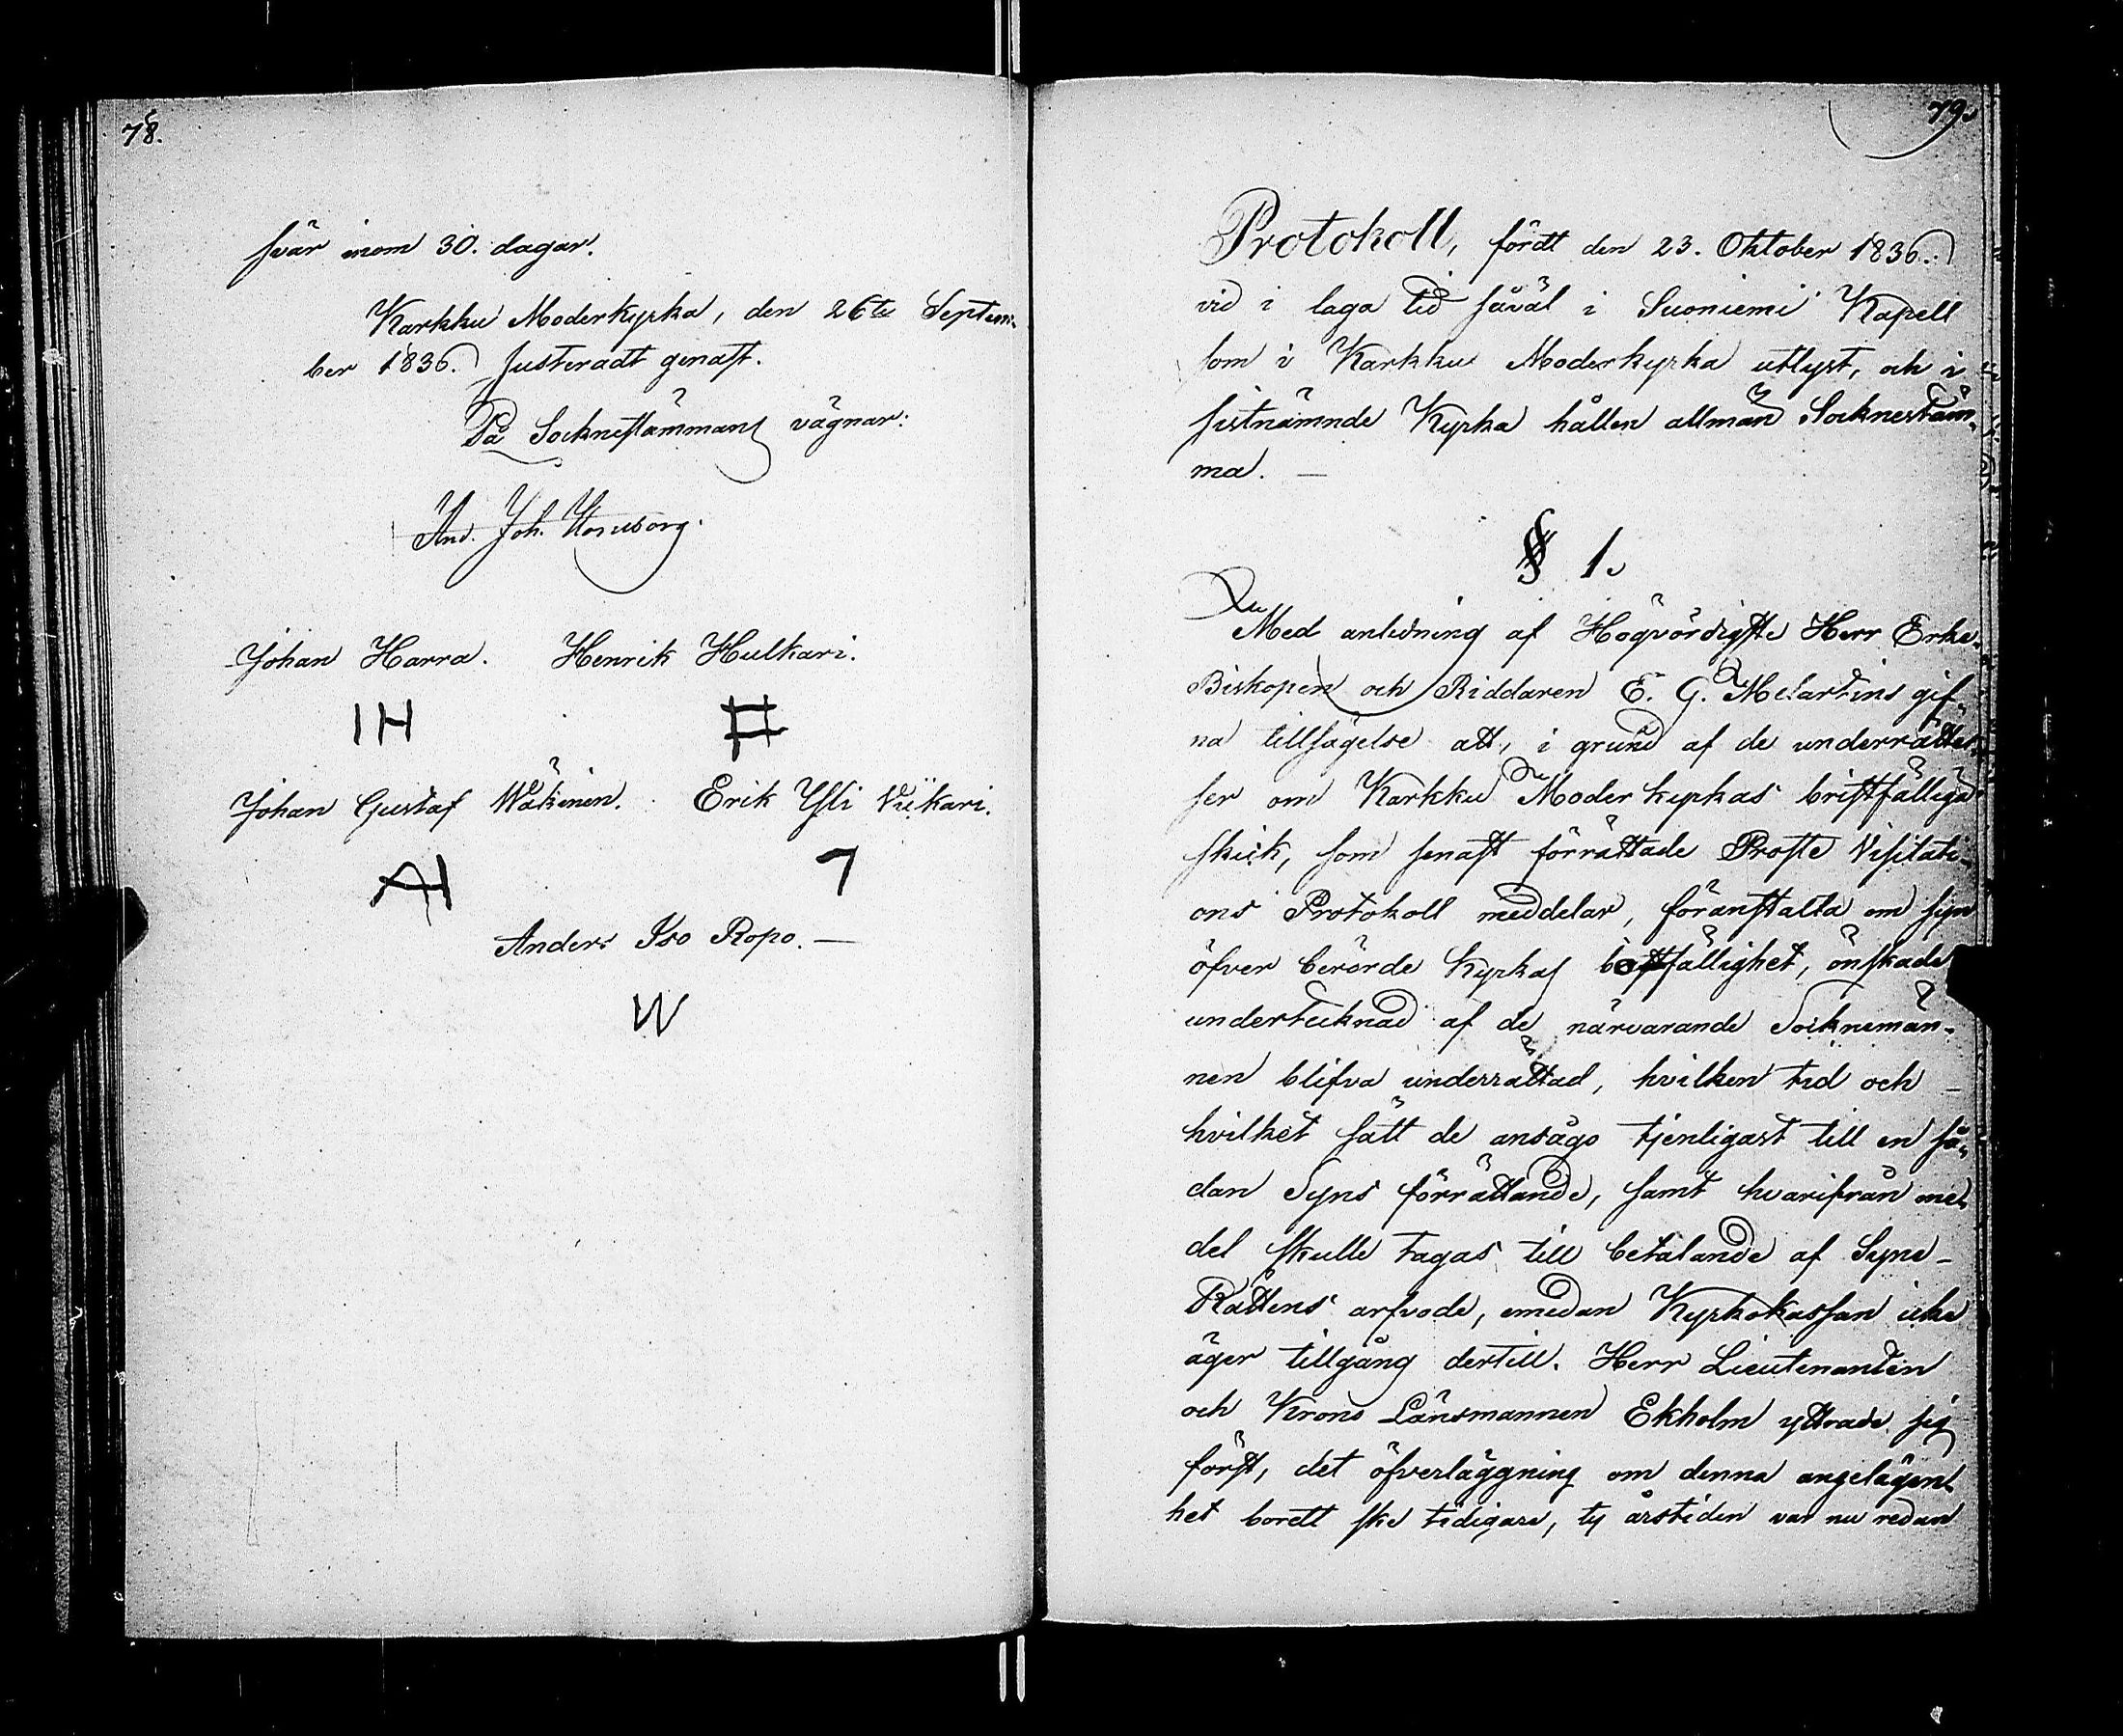 78.
svär inom 30. dagar.
Karkku Moderkyrka, den 26te Septem-
ber 1836. Justeradt genast.
På Socknestämmans vägnar:
And. Joh.
Johan Harra. Henrik Hulkari.
IH
Johan Gustaf Wäkinen. Erik Yli Vikari.
Anders Iso Ropo. —
W
79.
Protokoll, fördt den 23. Oktober 1836.
vid i laga tid såväl i Suoniemi Kapell
som i Karkku Moderkyrka utlyst, och i
sistnämnde Kyrka hållen allmän Socknestäm-
ma. —
§ 1.
Med anledning af Högvördigste Herr Erke-
Biskopen och Riddaren E. G. Melartins gif-
na tillsägelse att, i grund af de underrättel-
ser om Karkku Moder kyrkas bristfälliga
skick, som senast förrättade Proste Visitati-
ons Protokoll meddelar, föranstalta om syn
öfver berörde Kyrkas bristfällighet, önskade
undertecknad af de närvarande Socknemän-
nen blifva underrättad, hvilken tid och —
hvilket sätt de ansågo tjenligast till en så-
dan Syns förrättande, samt hvarifrån me-
del skulle tagas till betalande af Syne-
Rättens arfvode, emedan Kyrkokassan icke
äger tillgång dertill. Herr Lieutenanten
och Krono Länsmannen Ekholm yttrade sig
först, det öfverläggning om denna angelägen-
het bordt ske tidigare, ty årstiden var nu redan